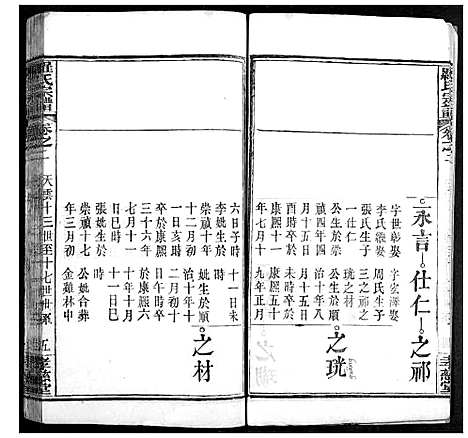 永言
仕仁
之祁
字世彰娶
李氏繼娶
張氏生子
一仕仁
公生於崇
禎四年四
月十五日
酉時卒於
康熙十一
年七月十
字宏深娶
周氏生子
三之祁之
珖之材
公生於順
治十年八
月十五日
未時卒於
康熙六十
九年正月
之珖
六日子時
李姚生於
崇禎十年
十二月初
一日亥時
卒於康熙
三十六年
十月初十
日巳時
張姚生於
崇禎十七
年三月初
十一日未
時
姚生於順
治十年十
二月初十
日時卒
於康熙六
十年十月
十一日巳
時
公姚合葬
金雞林中
之材
羅氏宗譜
卷之一
天雲十三世至十七世世系
五
孝慈堂